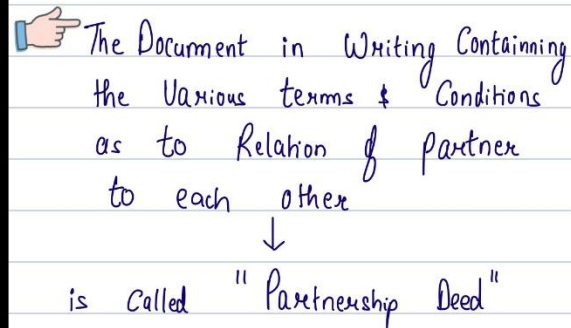 The Document in Writing Containning
the Various terms & Conditions
as to Relation of partner
to each other
↓
is Called "Partnership Deed"